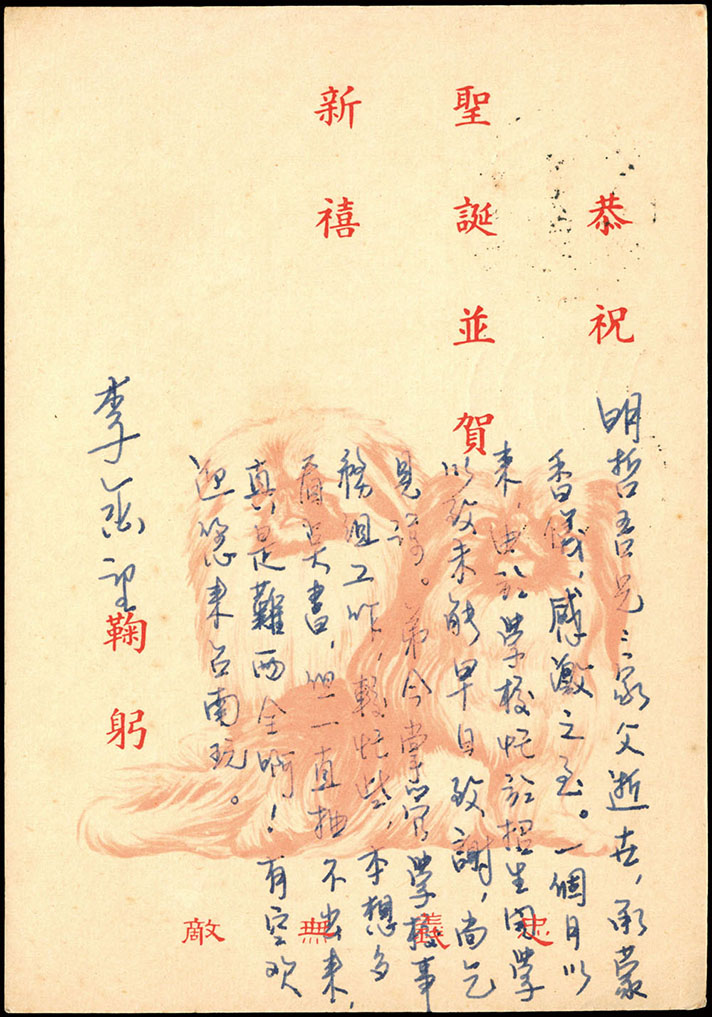 恭祝
聖誕並賀
新禧
明哲吾兄：家父逝世，承蒙
香儀，感激之至。一個月以
來，由於學校忙於招生開學
以致未能早日致謝，尚乞
見諒。弟今掌管學校事
務組工作，較忙些，本想多
看点書，但一直抽不出來，
真是難兩全啊！有空欢
迎您來台南玩。
李 望
鞠躬
忠義無敵